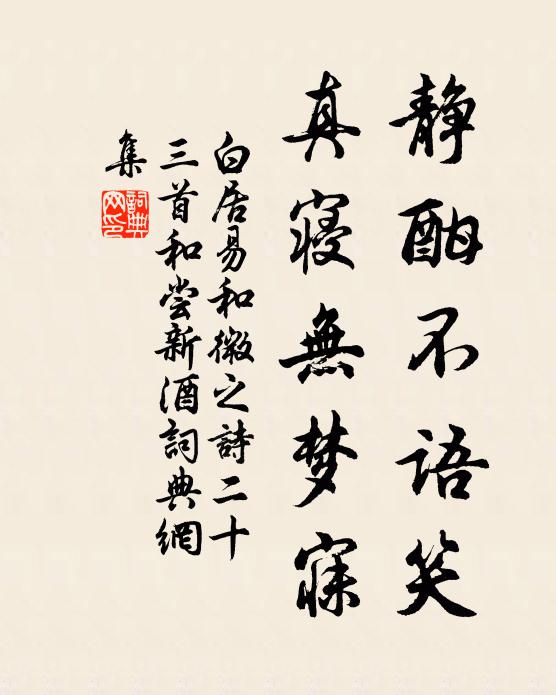 静酣不语笑
真寝無梦寐
白居易和微之詩二十
三首和尝新酒詞典網
集
詞典網印